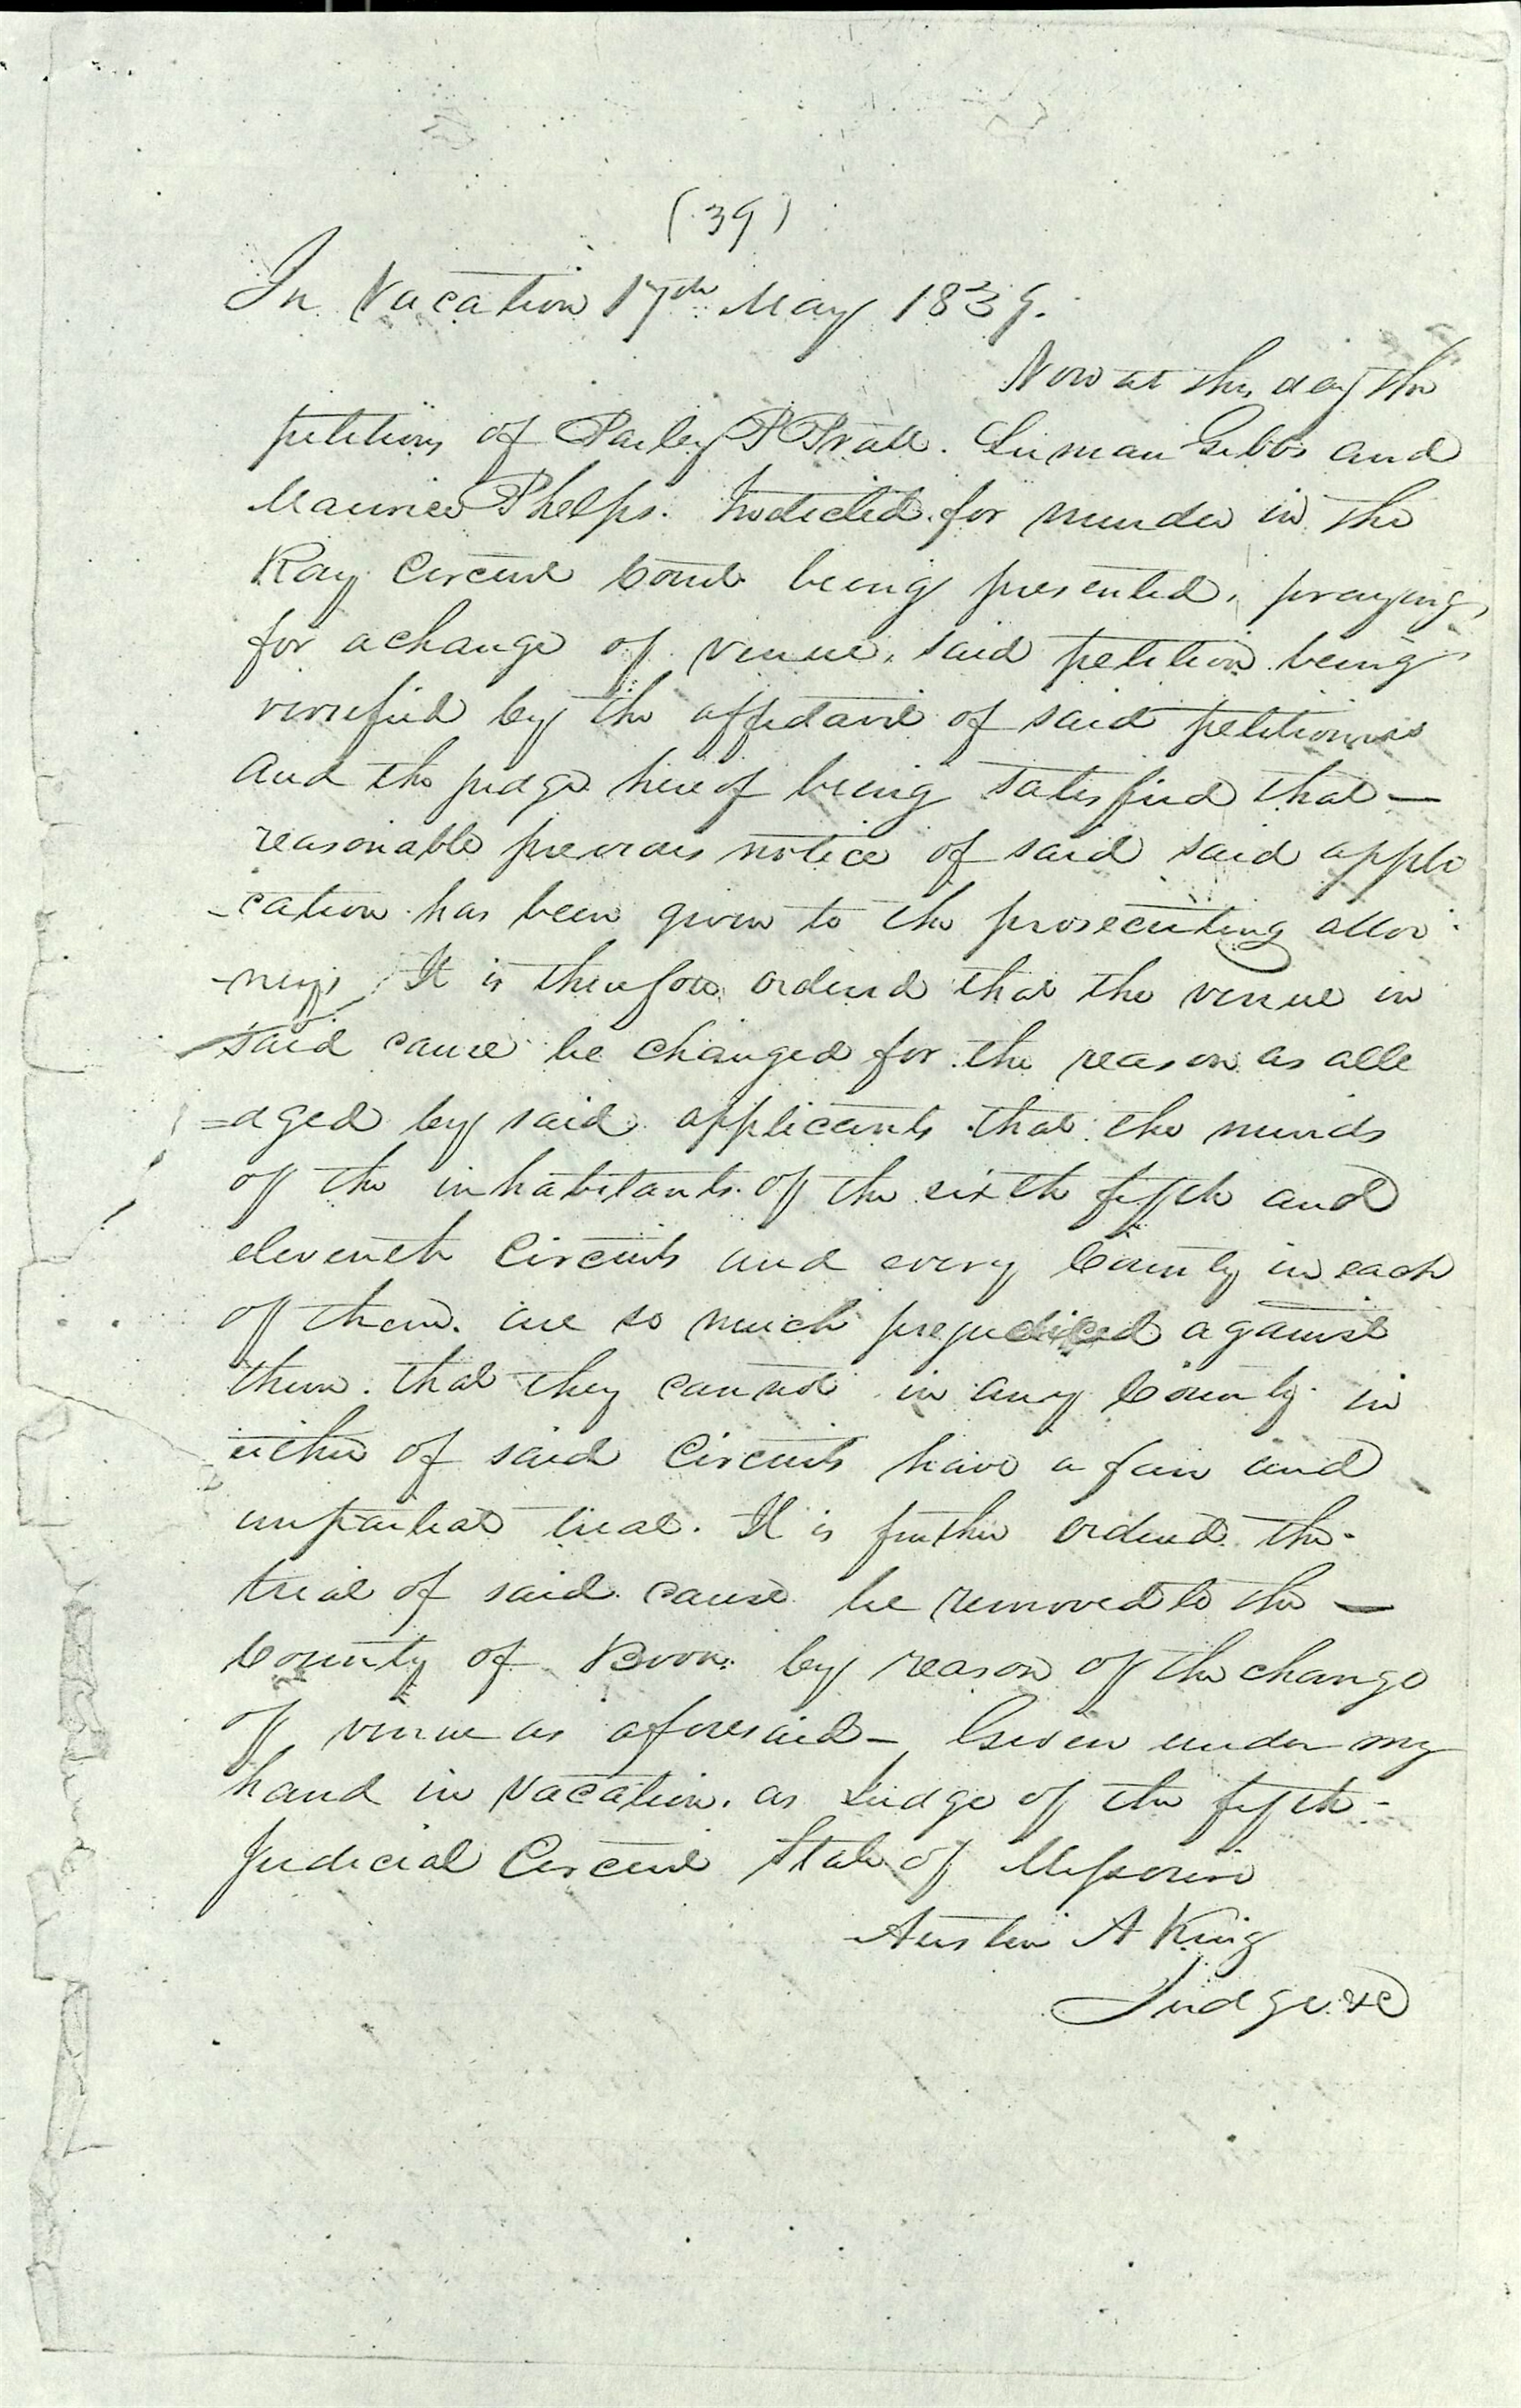 (39)
In Vacation 17th May 1839.
Now at this day the
petition of Parley P Pratt. Luman Gibbs and
Maurice Phelps. Indicted for murder in the
Ray Circuit Court being presented, praying
for a change of venue, said petition being
verrefied by the affidavit of said petitioners
And the judge hereof being satisfied that —
reasonable previous notice of said said appli
-cation has been given to the prosecuting attor
-neys, It is therefore ordered that the venue in
said cause be changed for the reason as alle
=dged by said applicants that the minds
of the inhabitants of the sixth fifth and
eleventh Circuits and every County in each
of them. are so much prejudiced against
them. that they cannot in any County in
either of said Circuits have a fair and
impartial trial. It is further ordered the
trial of said cause be removed to the —
County of Boon. by reason of the change
of venue as aforesaid — Given under my
hand in vacation. as Judge of the fifth -
Judicial Circuit State of Missouri
Austin A King
Judge &c